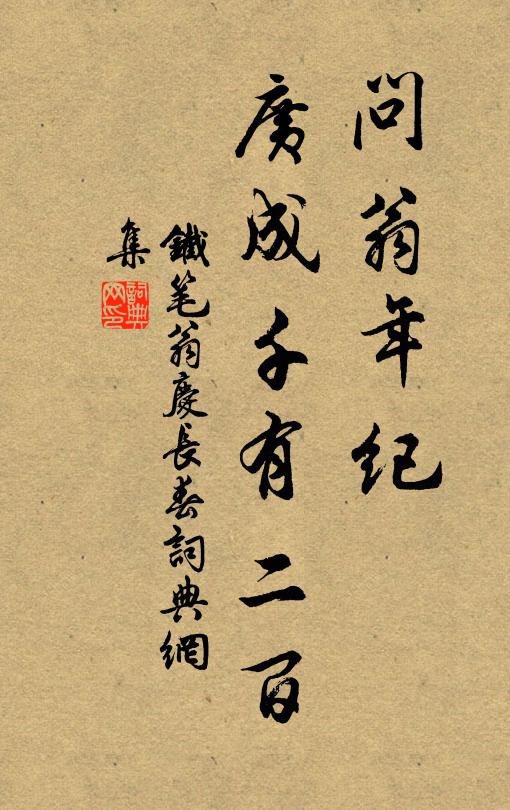 問翁年紀
廣成千有二百
鐵笔翁慶長春詞典網
集
詞典网印